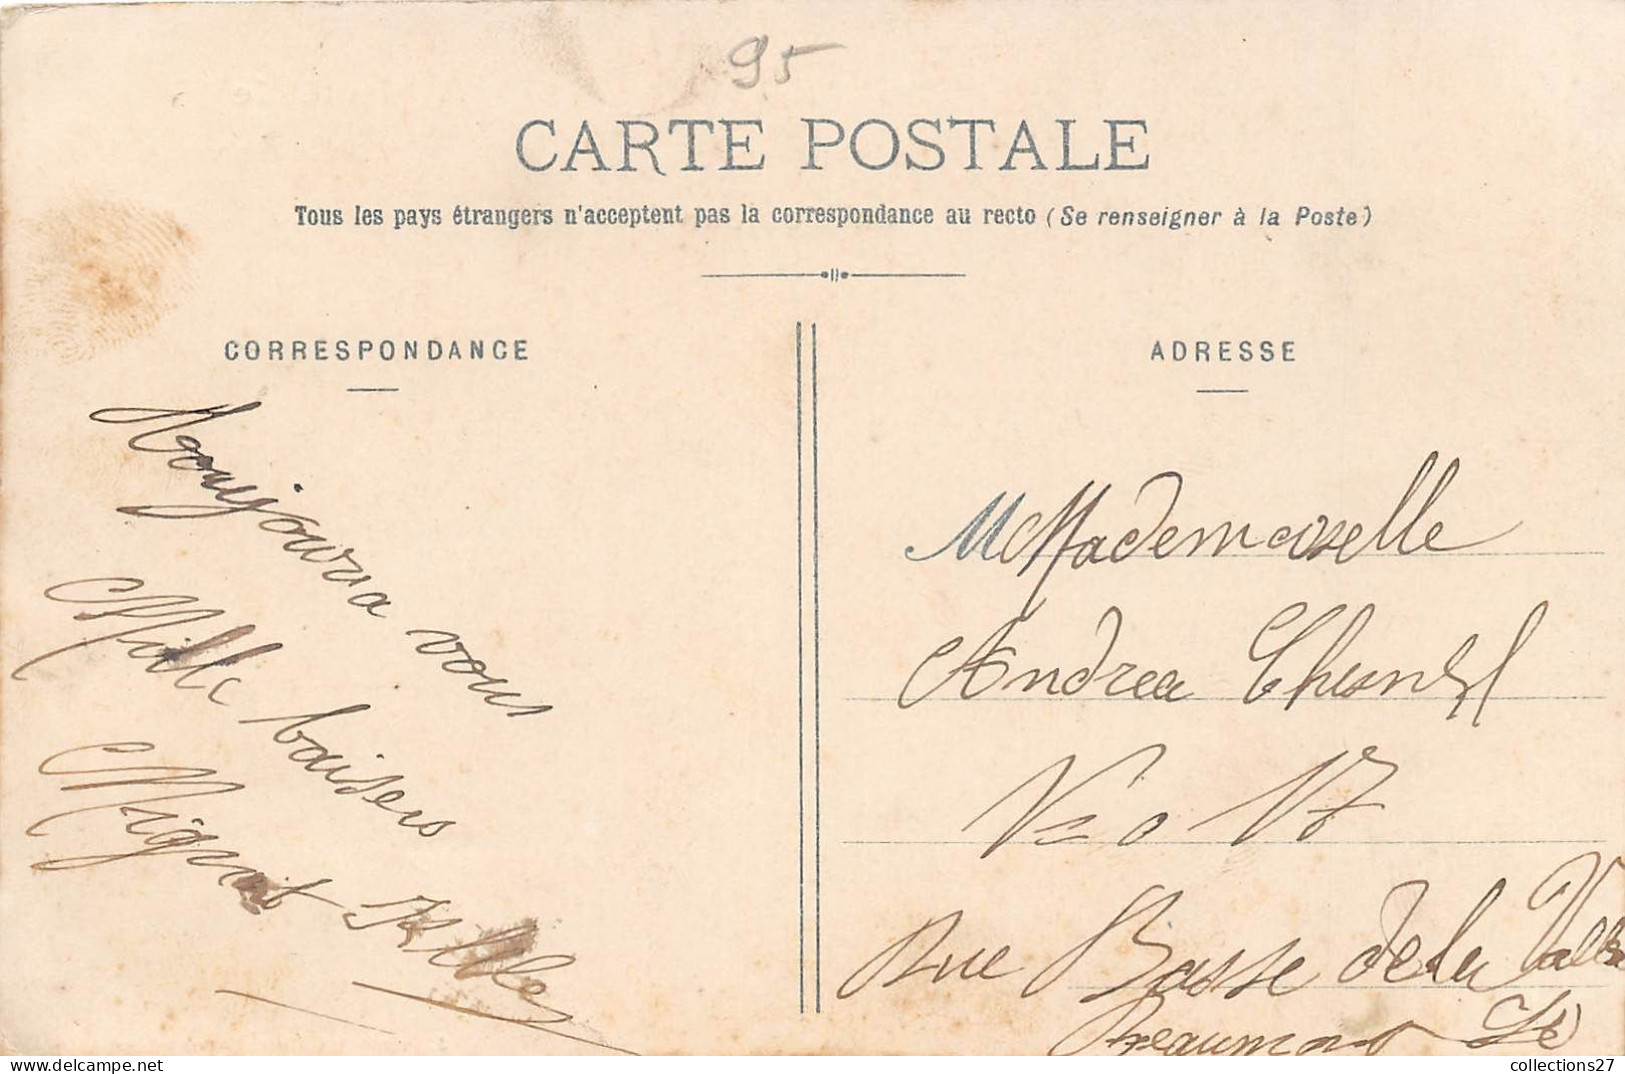 95
CARTE POSTALE
Tous les pays étrangers n'acceptent pas la correspondance au recto (Se renseigner à la Poste)
CORRESPONDANCE
ADRESSE
vous
Mille baisers
Mignot
M Mademoiselle
Andrea Chesnel
No 17
Rue Basse de la Vallée
Beaumont
www.delcampe.net
collections27